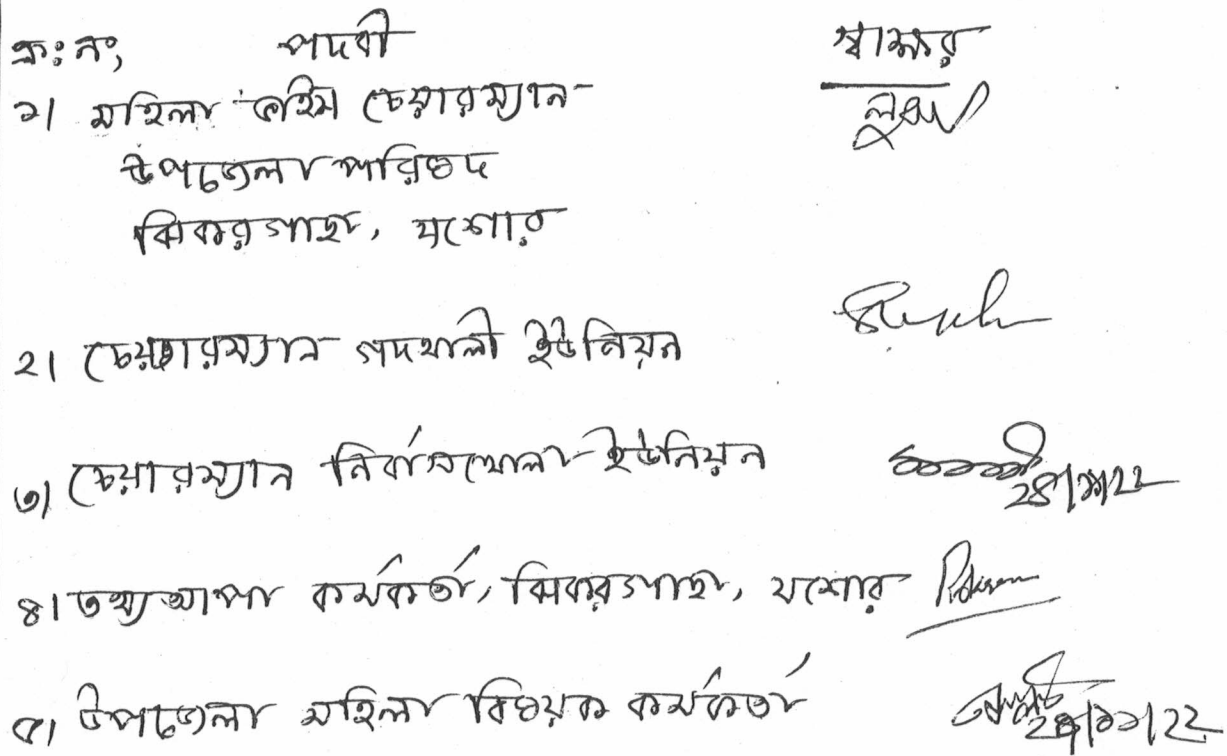 ক্র: নং, পদবী স্বাক্ষর
১। মহিলা ভাইস চেয়ারম্যান
উপজেলা পরিষদ
ঝিকরগাছা, যশোর
২। চেয়ারম্যান গদখালী ইউনিয়ন
৩। চেয়ারম্যান নির্বাসখোলা ইউনিয়ন
২৪/১১/২২
৪। তথ্যআপা কর্মকর্তা, ঝিকরগাছা, যশোর
৫। উপজেলা মহিলা বিষয়ক কর্মকর্তা
২৪/১১/২২